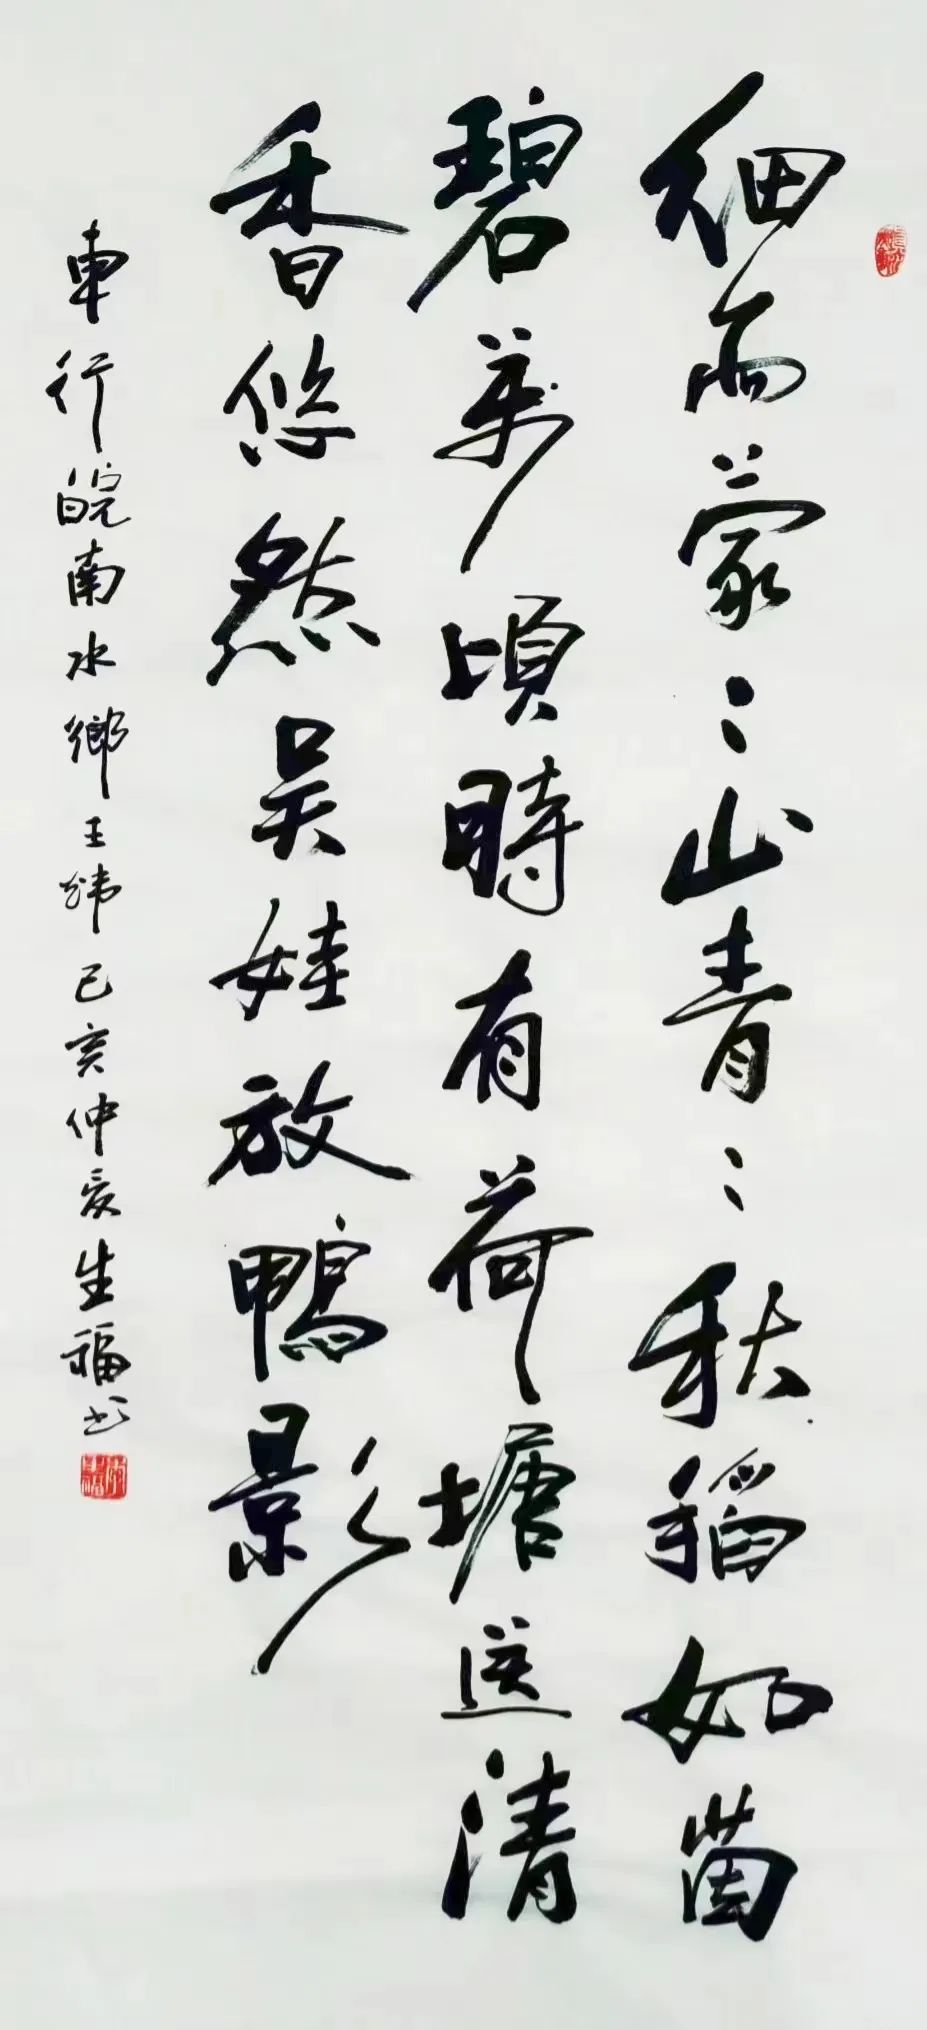 細雨蒙〻山青〻秋稻如茵
碧萬頃時有荷塘送清
香悠然吴娃放鴨影
車行皖南水鄉王緯己亥仲夏生福书